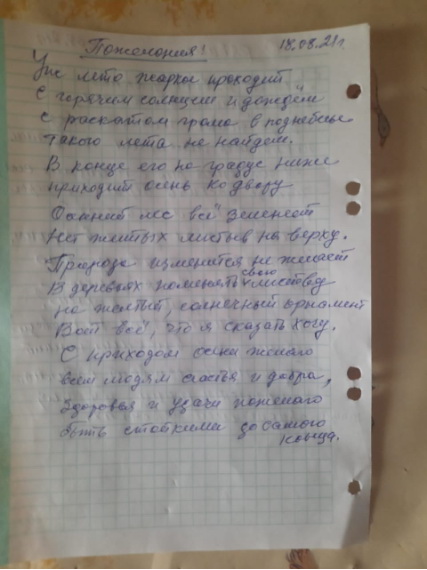 Пожелания! 18.08.21г.
Уже лето жаркое проходит
С горячим солнцем и дождём
С раскатом грома в поднебесье
Такого лета не найдём.
В конце его на градус ниже
приходит осень ко двору
Осенний лес всё зеленеет
Нет жёлтых листьев на верху.
Природа изменится не желает
В деревьях поменять свою листву
на желтый, солнечный орнамент
Вот всё, что я сказать хочу.
С приходом осени желаю
всем людям счастья и добра,
Здоровья и удачи пожелаю
быть стойкими до самого
конца.